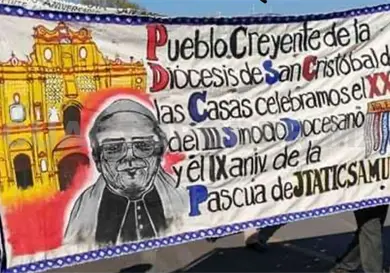 Pueblo Creyente de la
Diócesis de San Cristóbal d
las Casas celebramos el XX
del III Sínodo Diocesano
y él IX aniv de la
Pascua de JTATIC SAMU